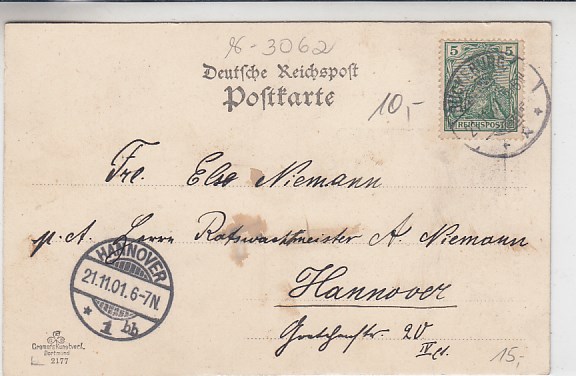 8-3062
Deutsche Reichspost
Postkarte
10,-
5 5
REICHSPOST
BÜCKEBURG
Frl. Else Niemann
p. A. Herrn Ratswachtmeister A. Niemann
Hannover
Gretchenstr. 20
IV et.
HANNOVER
21.11.01. 6-7N.
* 1 bb
Dortmund
2177
15,-